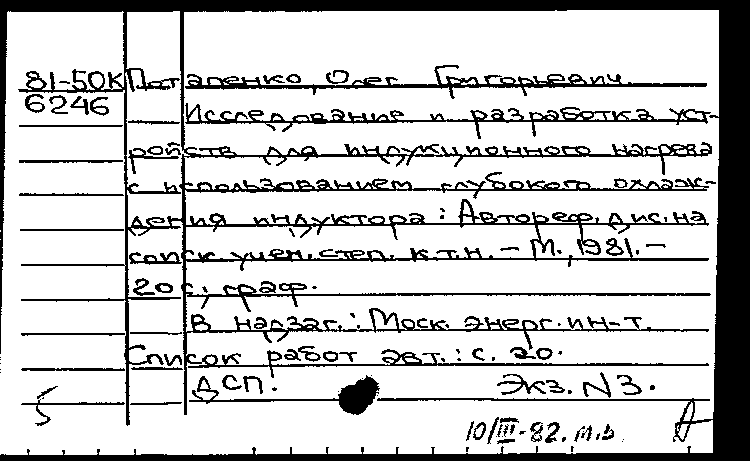 81-50К Потапенко, Олег Григорьевич.
6246 Исследование и разработка уст-
ройств для индукционного нагрева
с использованием глубокого охлаж-
дения индуктора: Автореф. дис. на
соиск. учен. степ. к.т.н. – М., 1981. –
20 с., граф.
В надзаг.: Моск. энерг. ин-т.
Список работ авт.: с. 20.
ДСП. Экз. N3.
5
10/III-82. т.в.